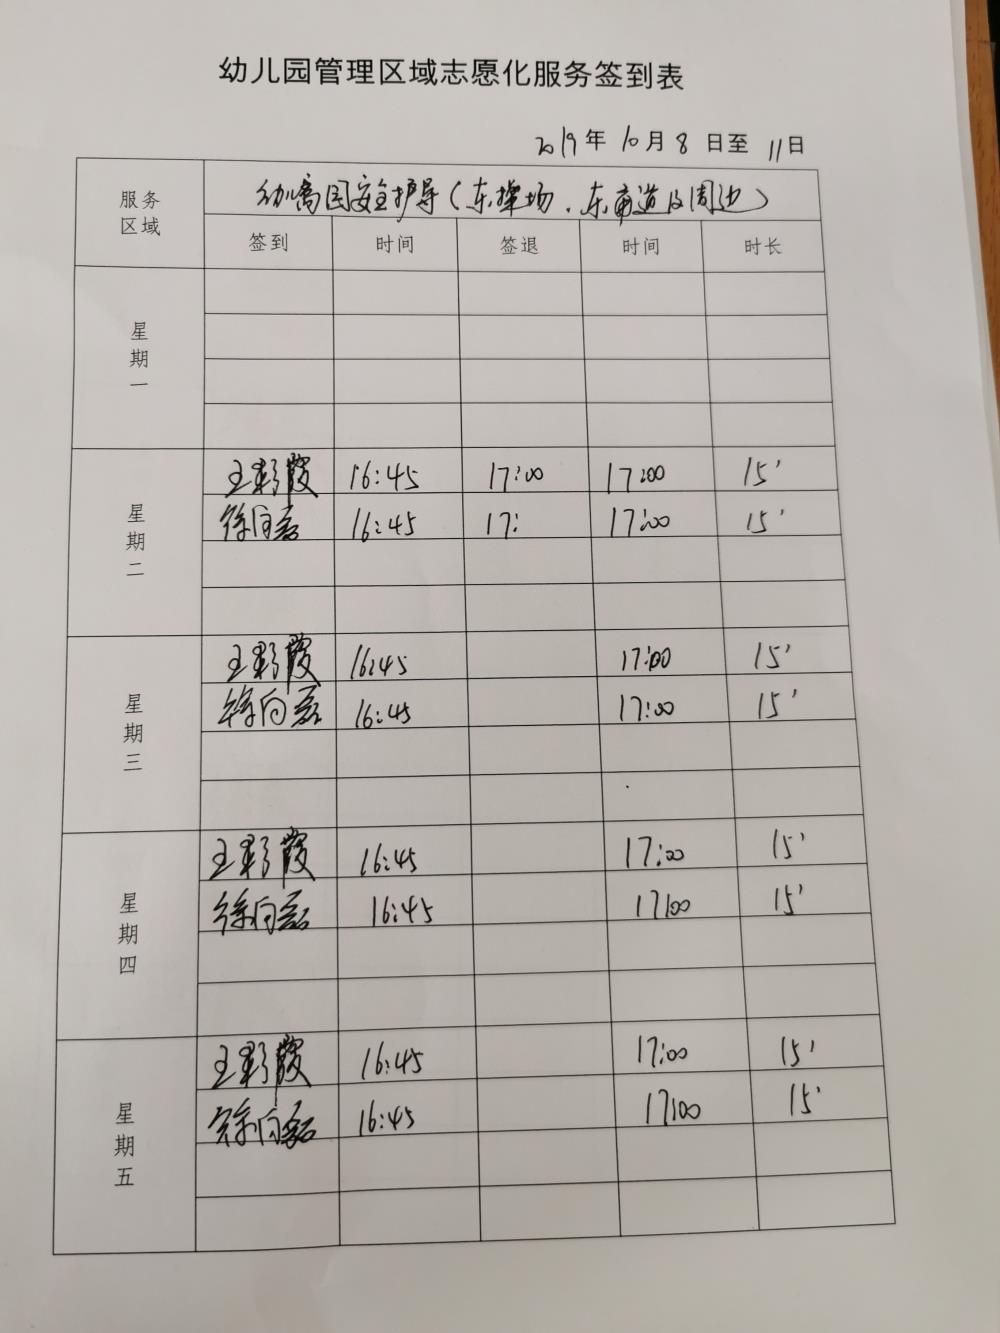 幼儿园管理区域志愿化服务签到表
2019年10月8日至11日
服务区域 幼儿园安全护导(东操场、东甬道及周边)
签到 时间 签退 时间 时长
星期一
星期二
王彩霞 16:45 17:00 17:00 15'
徐向磊 16:45 17: 17:00 15'
星期三
王彩霞 16:45 17:00 15'
徐向磊 16:45 17:00 15'
星期四
王彩霞 16:45 17:00 15'
徐向磊 16:45 17:00 15'
星期五
王彩霞 16:45 17:00 15'
徐向磊 16:45 17:00 15'